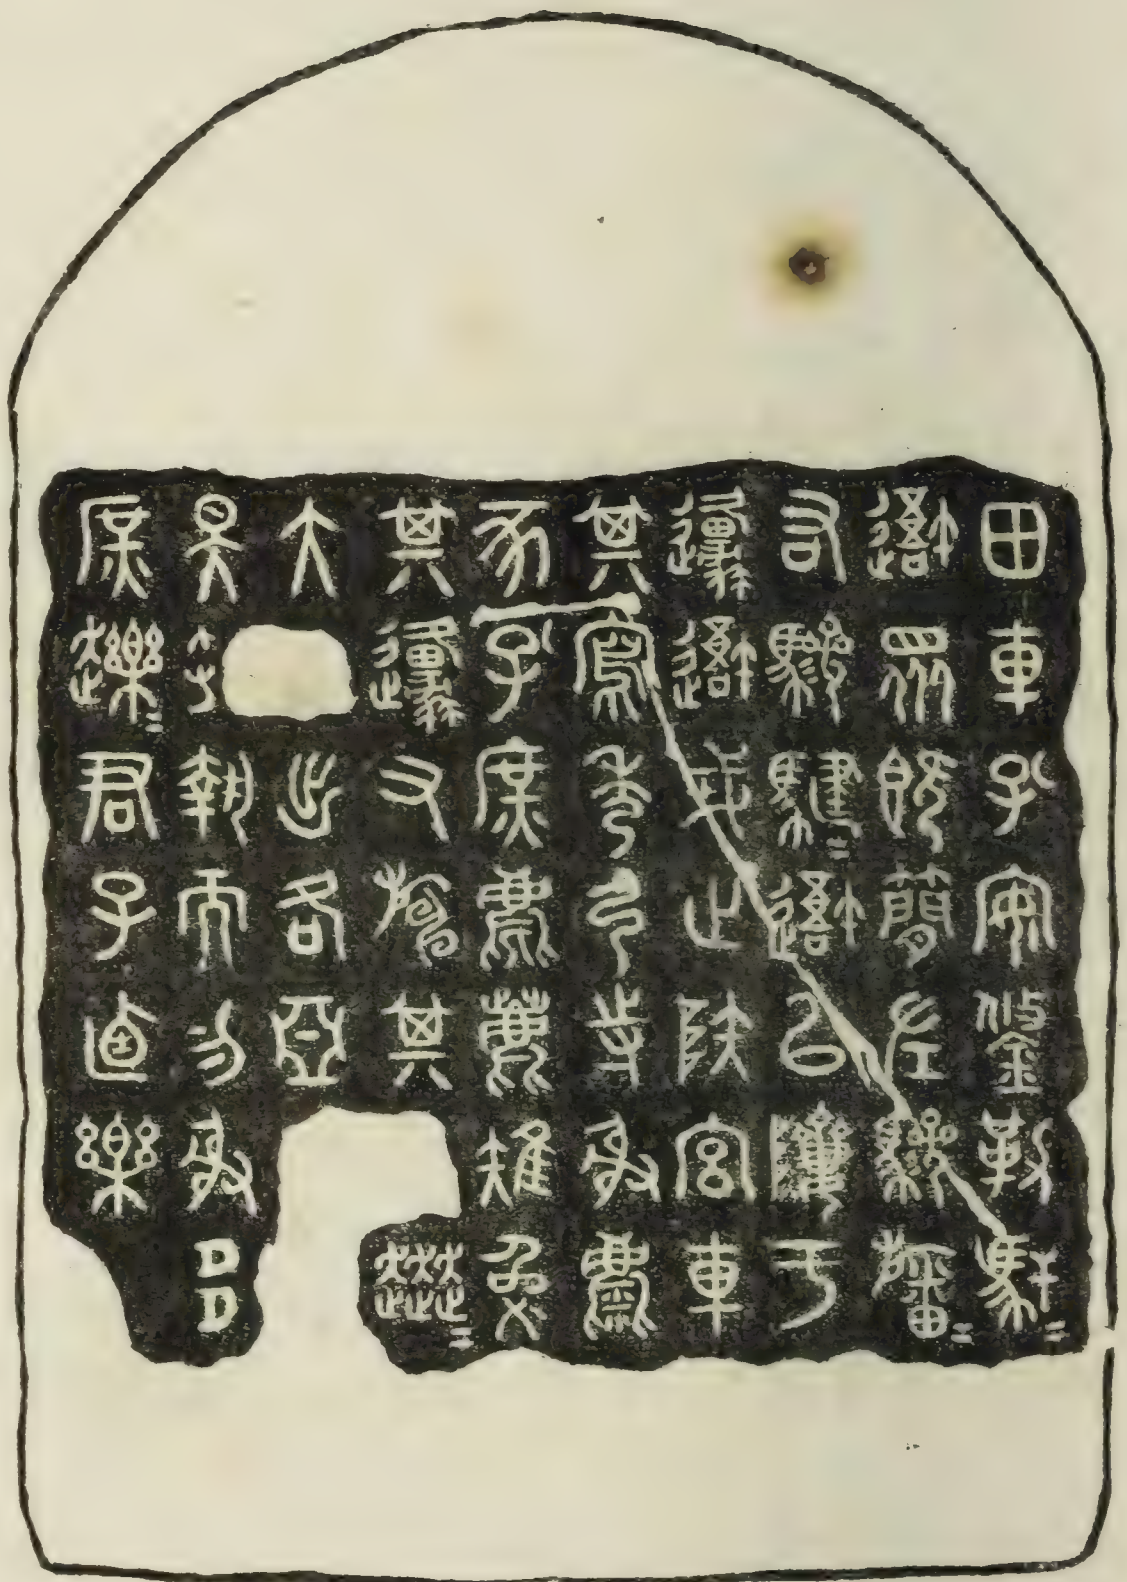 田車孔安鋚勒馯=
避眾既簡左驂旛=
右驂騝=避以隮于
邍避戎止陜宮車
其寫秀弓寺射麋
豕孔庶麀鹿雉兔
其邍又旃其奔=
大出各亞
昊執而勿射多
庶䟏=君子逌樂